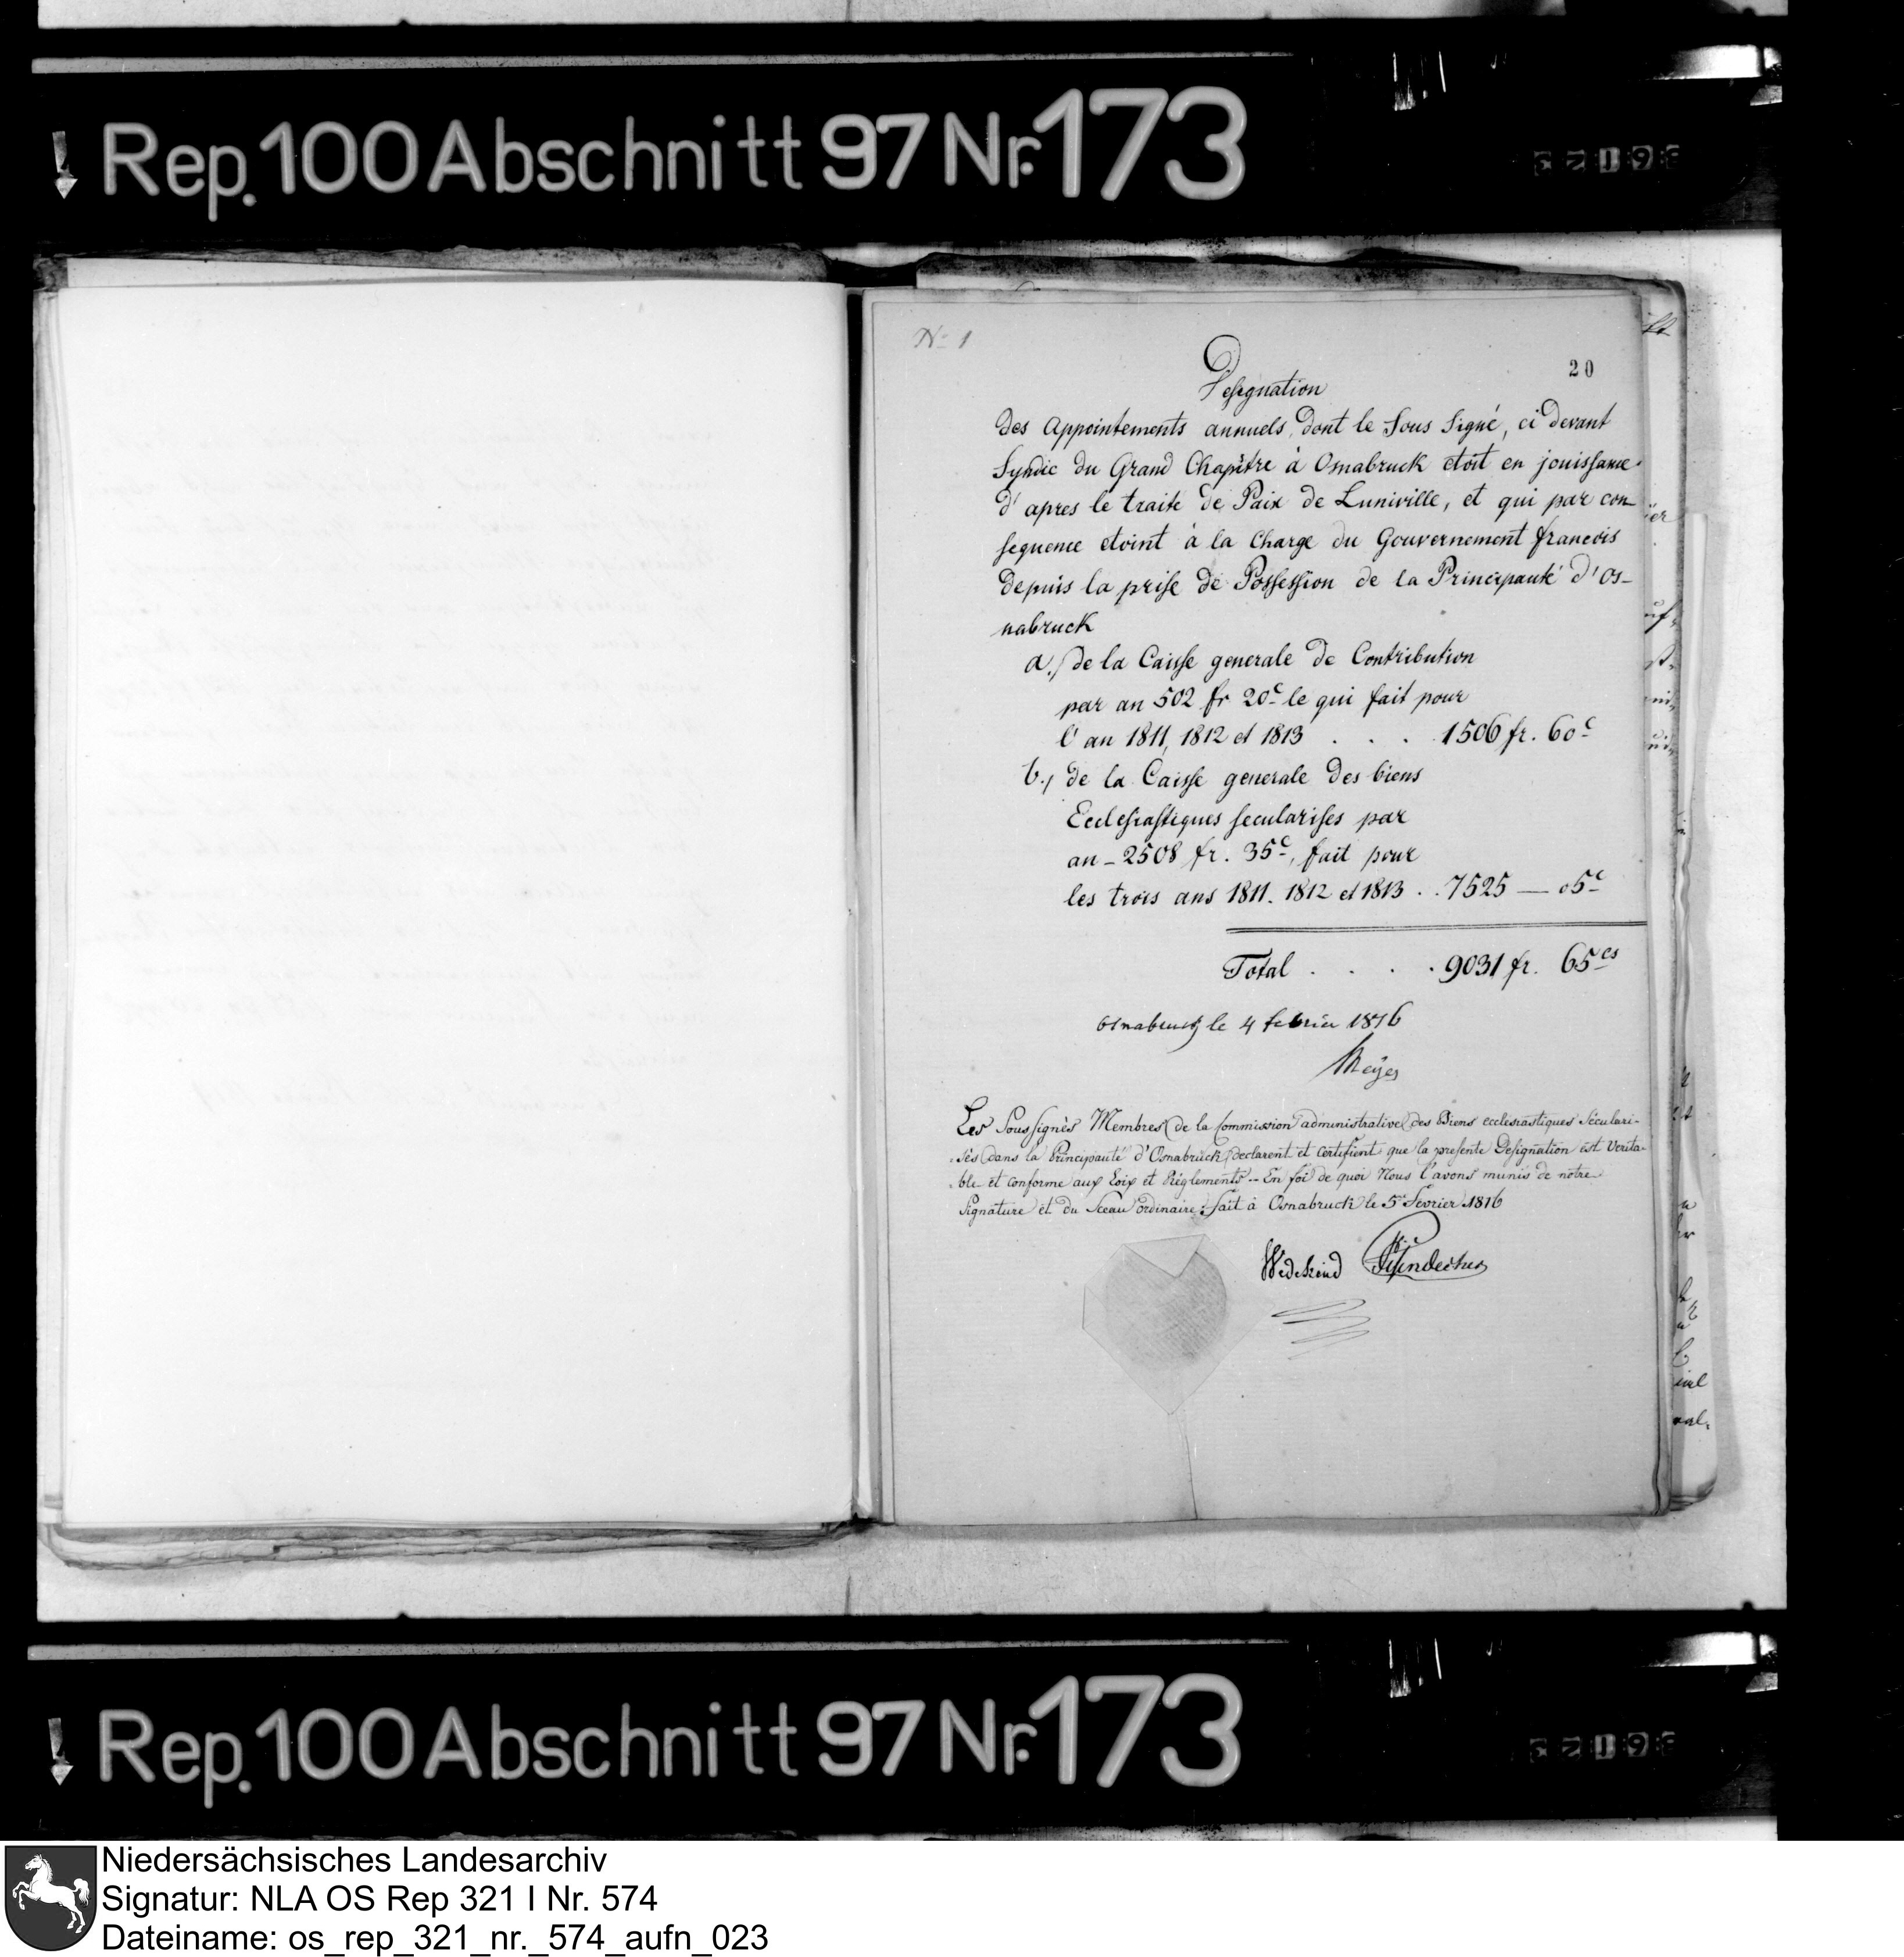 Rep. 100 Abschnitt 97 Nr. 173
No 1
20
Designation
des Appointements annuels, dont le Sous Signé, ci devant
Syndic du Grand Chapitre à Osnabruck etoit en jouissance
d'apres le traite de Paix de Luniville, et qui par con-
sequence etoint à la Charge du Gouvernement francois
depuis la prise de Possession de la Principauté d'Os-
nabruck
a./ de la Caisse generale de Contribution
par an 502 fr 20c le qui fait pour
l'an 1811, 1812 et 1813 . . . 1506 fr. 60c
b./ de la Caisse generale des biens
Ecclesiastiques secularises par
an - 2508 fr. 35c, fait pour
les trois ans 1811. 1812 et 1813 . . 7525 — 05c
Total . . . . 9031 fr. 65cs
Osnabruck le 4 febrier 1816
Meyer
Les Soussignès Membres de la Commission administrative des Biens ecclesiastiques Sèculari-
sès dans la Principauté d'Osnabruck declarent et certifient que la presente Designation est Verita-
ble et conforme aux Loix et Règlements -- En foi de quoi Nous l'avons munis de notre
Signature et du Sceau ordinaire: fait à Osnabruck le 5 Février 1816
Wedekind
Rep. 100 Abschnitt 97 Nr. 173
Niedersächsisches Landesarchiv
Signatur: NLA OS Rep 321 I Nr. 574
Dateiname: os_rep_321_nr._574_aufn_023